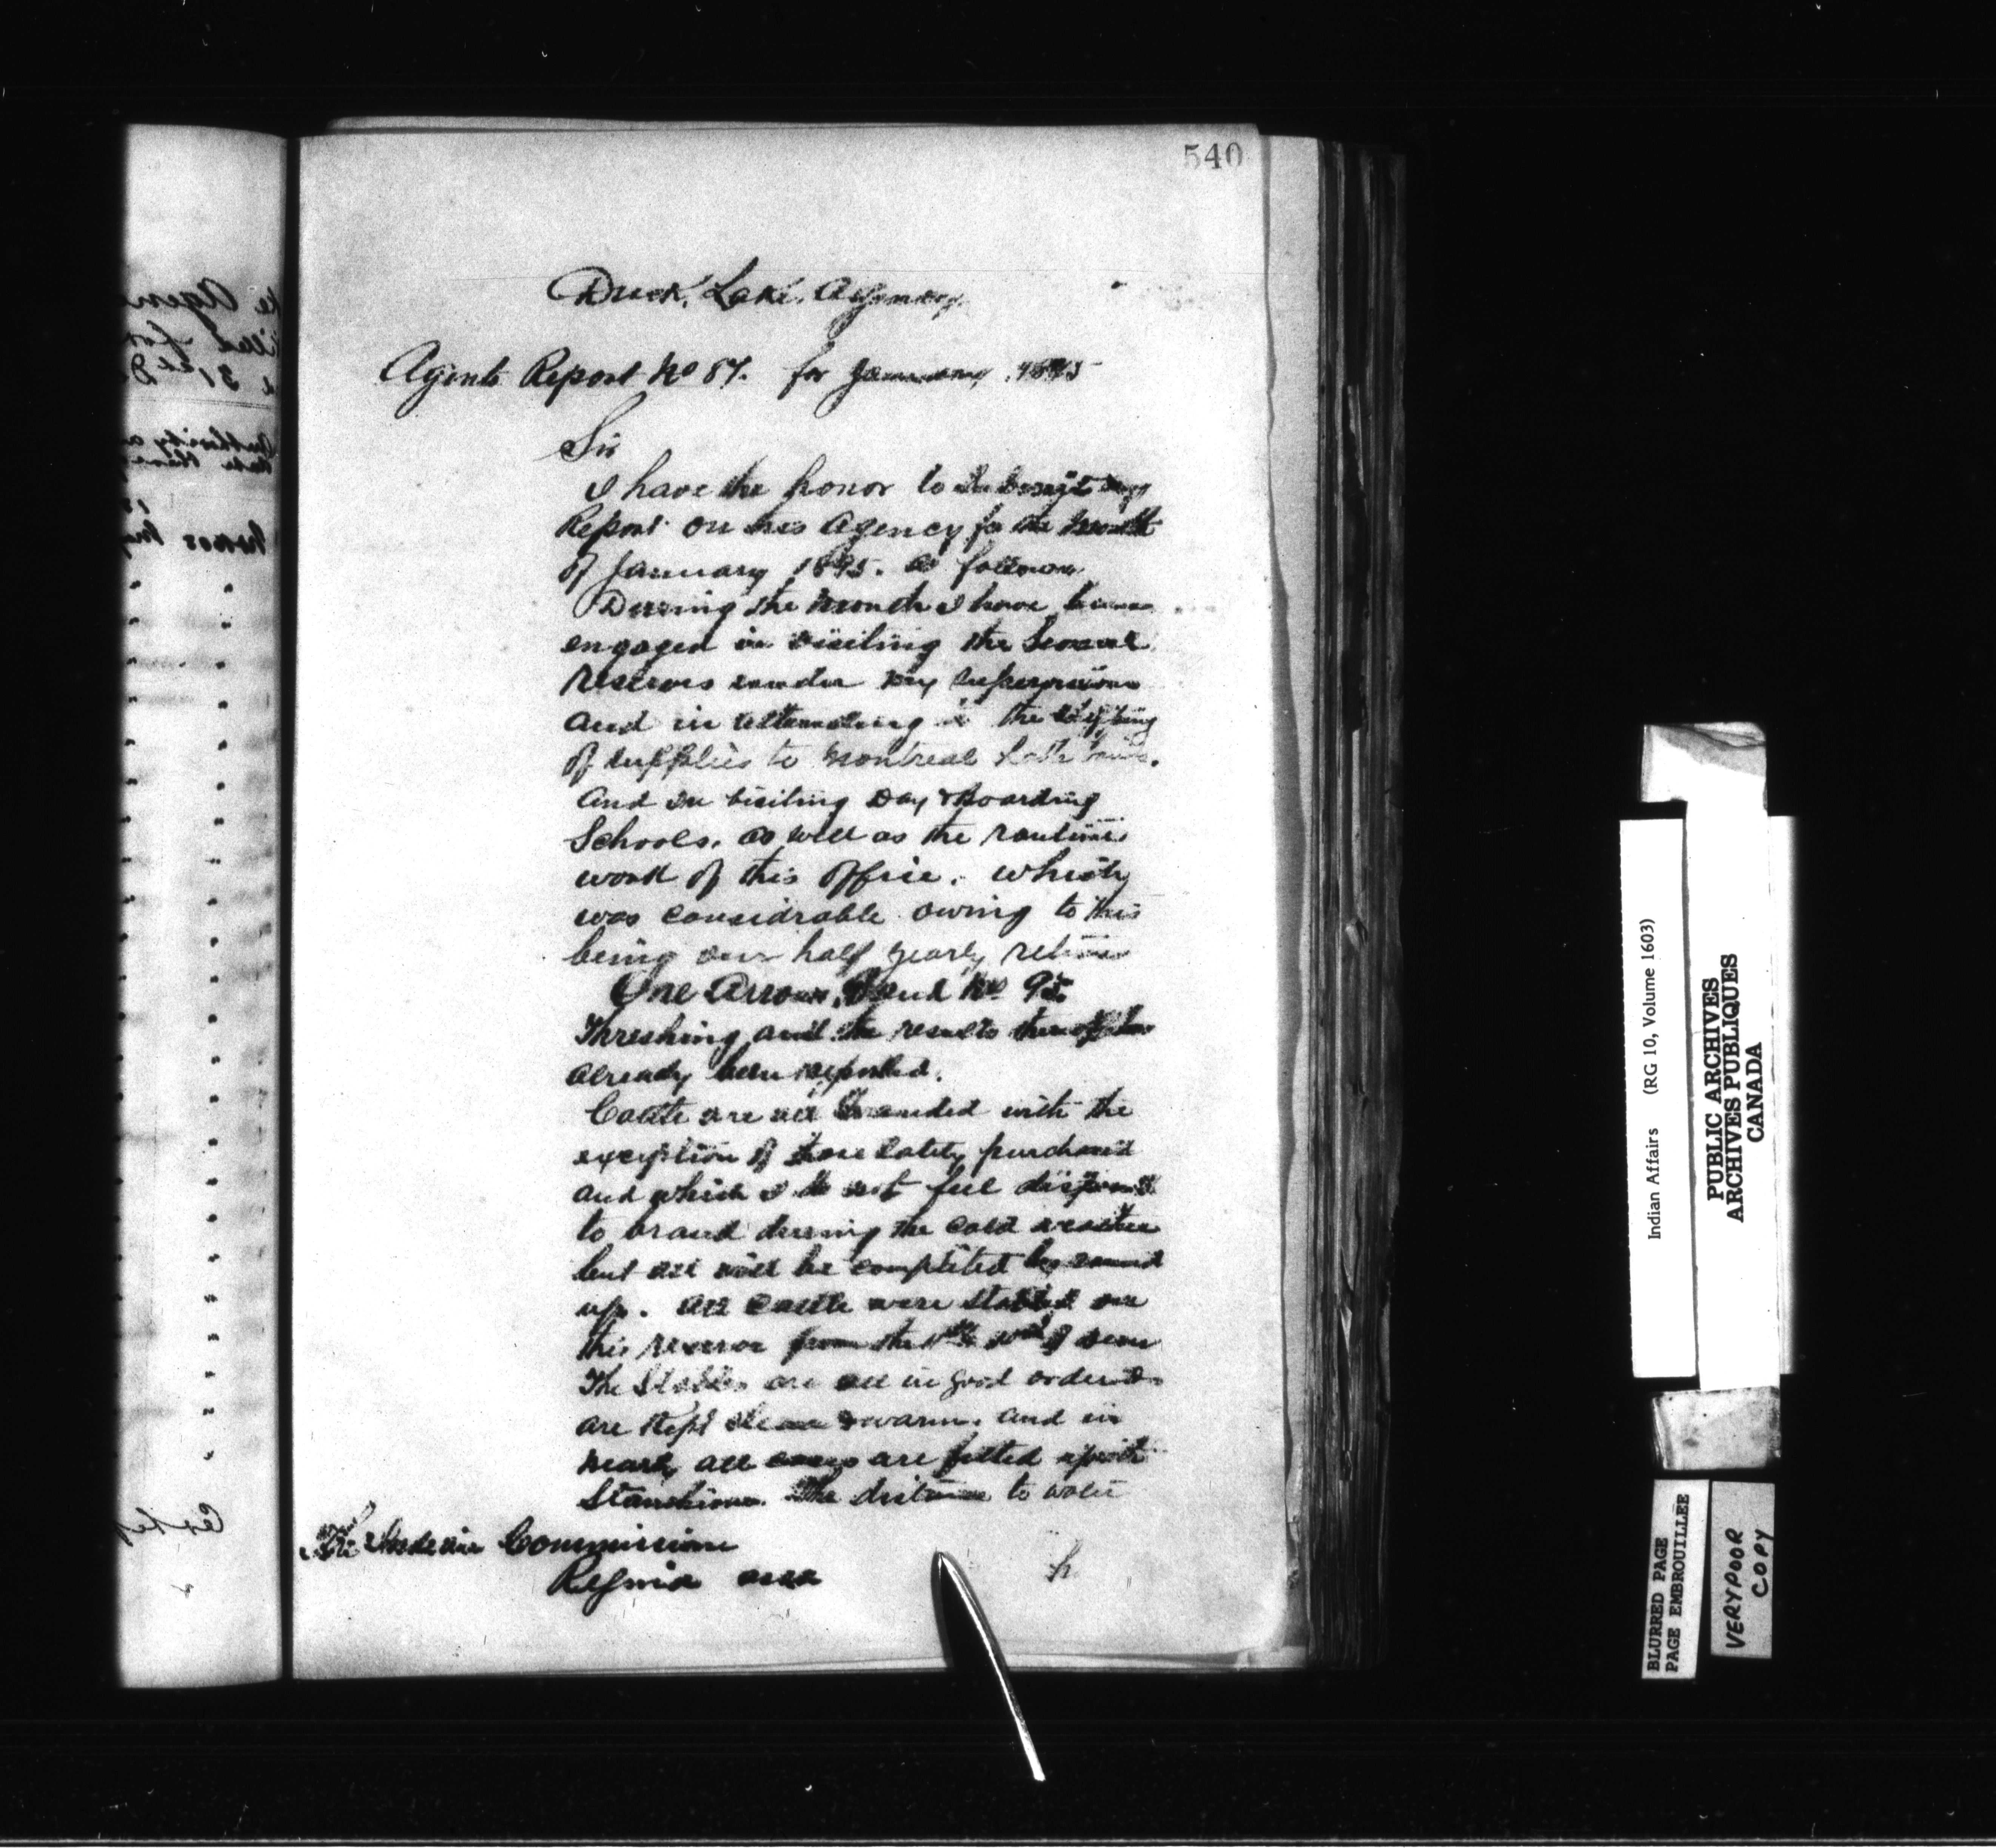 540
Duck Lake Agency
Agents Report No 87. for January 1895
Sir
I have the honor to submit my
Report on this Agency for the month
of January 1895. as follows
During the month I have been
engaged in visiting the several
Reserves under my supervision
and in attending to the
of supplies to Montreal Lake
and in visiting Day & Boarding
Schools. as well as the routine
work of this office. which
was considrable owing to this
being our half yearly returns
One Arrow Band No 95.
Threshing and the results thereof has
already been reported.
Cattle are all branded with the
exception of those lately purchased
and which I do not feel disposed
to brand during the cold weather
but all will be completed by round
up. All cattle were stabled on
this reserve from the
The Stables are all in good order &
are kept clean & warm. and in
nearly all cases are fitted up with
Stanchions. The distance to water
The Indian Commissioner
Regina
Indian Affairs (RG 10, Volume 1603)
PUBLIC ARCHIVES
ARCHIVES PUBLIQUES
CANADA
BLURRED PAGE
PAGE EMBROUILLEE
VERY POOR
COPY